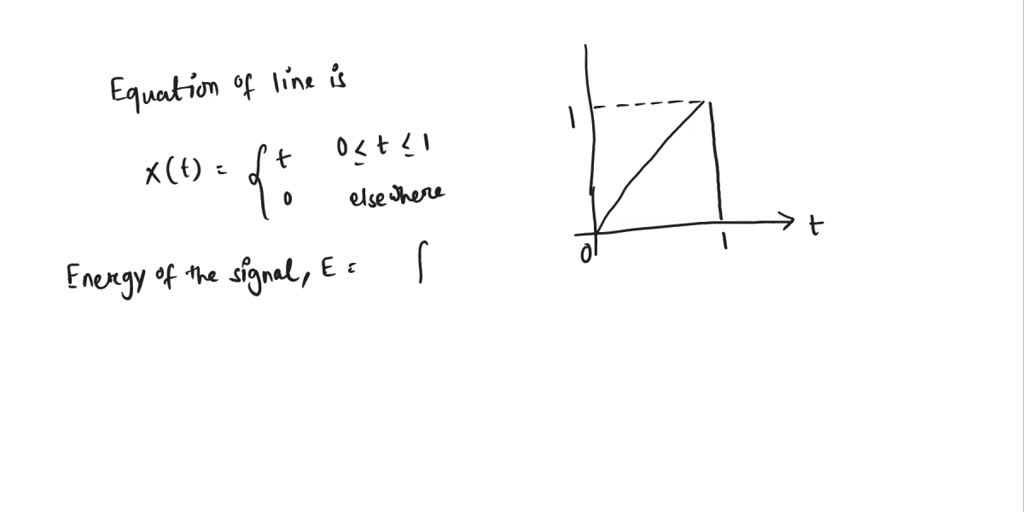 Equation of line is
x(t) = { t 0 ≤ t ≤ 1
0 elsewhere
Energy of the signal, E = ∫
1
0
1
t